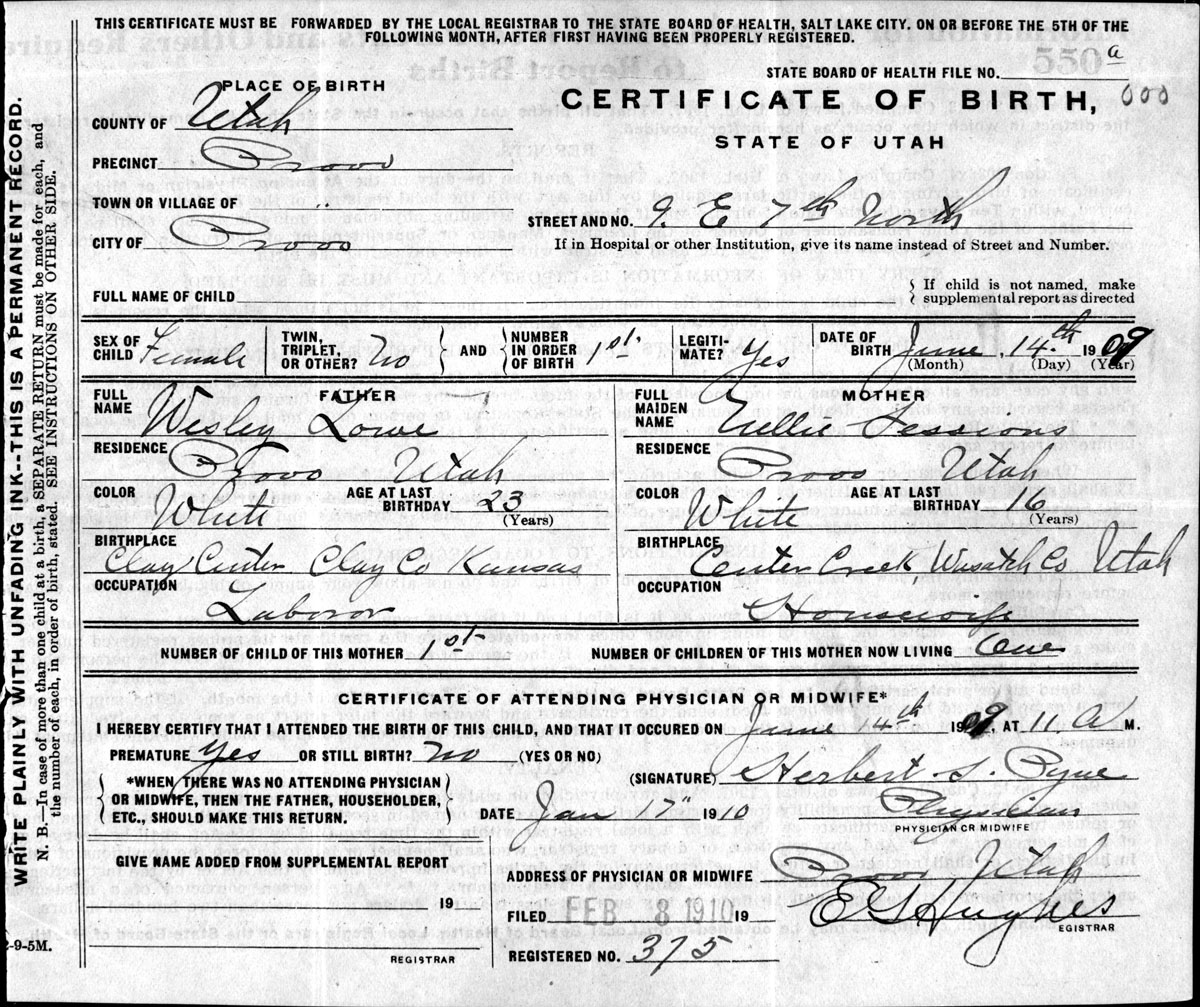 THIS CERTIFICATE MUST BE FORWARDED BY THE LOCAL REGISTRAR TO THE STATE BOARD OF HEALTH, SALT LAKE CITY, ON OR BEFORE THE 5TH OF THE
FOLLOWING MONTH, AFTER FIRST HAVING BEEN PROPERLY REGISTERED.
550 a
STATE BOARD OF HEALTH FILE NO.
PLACE OF BIRTH
CERTIFICATE OF BIRTH, 000
COUNTY OF Utah
STATE OF UTAH
PRECINCT Provo
TOWN OR VILLAGE OF "
STREET AND NO. 9 E 7th North
CITY OF Provo
If in Hospital or other Institution, give its name instead of Street and Number.
FULL NAME OF CHILD
{ If child is not named, make
supplemental report as directed
SEX OF CHILD Female
TWIN, TRIPLET, OR OTHER? no
AND
NUMBER IN ORDER OF BIRTH 1st.
LEGITI- MATE? Yes
DATE OF BIRTH June 14.th 1909
(Month) (Day) (Year)
FATHER
FULL NAME Wesley Lowe
RESIDENCE Provo Utah
COLOR White AGE AT LAST BIRTHDAY 23
(Years)
BIRTHPLACE
Clay Center Clay Co Kansas
OCCUPATION
Laboror
MOTHER
FULL MAIDEN NAME Nellie Sessions
RESIDENCE Provo Utah
COLOR White AGE AT LAST BIRTHDAY
(Years)
BIRTHPLACE
Center Creek Wasatch Co Utah
OCCUPATION
Housewife
NUMBER OF CHILD OF THIS MOTHER 1st NUMBER OF CHILDREN OF THIS MOTHER NOW LIVING One
CERTIFICATE OF ATTENDING PHYSICIAN OR MIDWIFE*
I HEREBY CERTIFY THAT I ATTENDED THE BIRTH OF THIS CHILD, AND THAT IT OCCURED ON June 14th 1909, AT 11 A M.
PREMATURE yes OR STILL BIRTH? no (YES OR NO)
*WHEN THERE WAS NO ATTENDING PHYSICIAN
OR MIDWIFE, THEN THE FATHER, HOUSEHOLDER,
ETC., SHOULD MAKE THIS RETURN.
(SIGNATURE) Herbert S. Pyne
DATE Jan 17" 1910 Physician
PHYSICIAN OR MIDWIFE
GIVE NAME ADDED FROM SUPPLEMENTAL REPORT
19
REGISTRAR
ADDRESS OF PHYSICIAN OR MIDWIFE Provo Utah
FILED FEB 8 1910 19 E G Hughes
EGISTRAR
REGISTERED NO. 375
WRITE PLAINLY WITH UNFADING INK--THIS IS A PERMANENT RECORD.
N. B.—In case of more than one child at a birth, a SEPARATE RETURN must be made for each, and
the number of each, in order of birth, stated. SEE INSTRUCTIONS ON OTHER SIDE.
-9-5M.